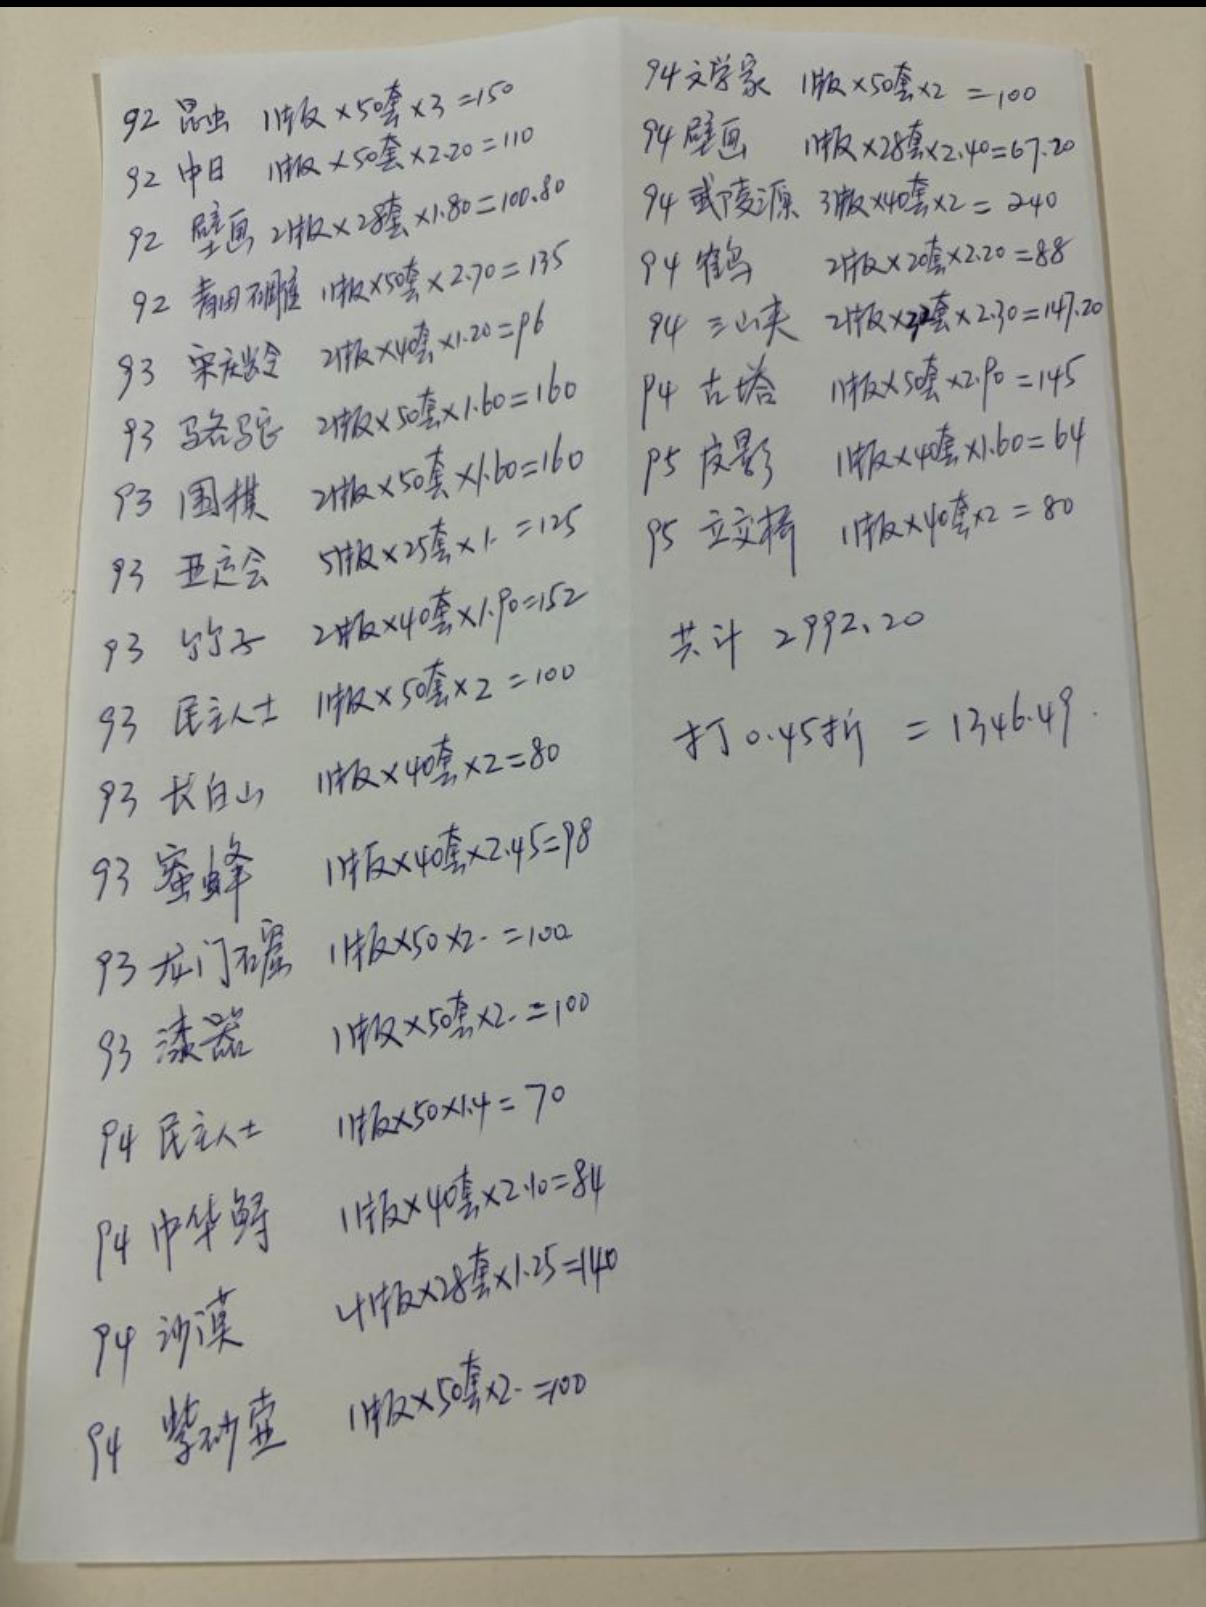 92 昆虫 1版×50套×3=150
92 中日 1版×50套×2.20=110
92 壁画 2版×28套×1.80=100.80
92 青田石雕 1版×50套×2.70=135
93 宋庆龄 2版×40套×1.20=96
93 骆驼 2版×50套×1.60=160
93 围棋 2版×50套×1.60=160
93 亚运会 5版×25套×1.=125
93 竹子 2版×40套×1.90=152
93 民主人士 1版×50套×2=100
93 长白山 1版×40套×2=80
93 蜜蜂 1版×40套×2.45=98
93 龙门石窟 1版×50×2.=100
93 漆器 1版×50套×2.=100
94 民主人士 1版×50×1.4=70
94 中华鲟 1版×40套×2.10=84
94 沙漠 4版×28套×1.25=140
94 紫砂壶 1版×50套×2.=100
94 文学家 1版×50套×2=100
94 壁画 1版×28套×2.40=67.20
94 武陵源 3版×40套×2=240
94 鹤 2版×20套×2.20=88
94 三山夹 2版×32套×2.30=147.20
94 古塔 1版×50套×2.90=145
95 皮影 1版×40套×1.60=64
95 立交桥 1版×40套×2=80
共计 2992.20
打0.45折 =1346.49.